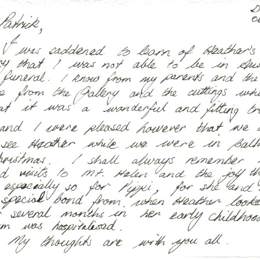 D
Patrick,
I was saddened to learn of Heather's
that I was not able to be in
funeral. I know from my parents and the
from the Gallery and the cuttings
it was a wonderful and fitting
and I were pleased however that we
see Heather while we were in
Christmas. I shall always remember
visits to Mt. Helen and the joy
especially so for Pippi, for she and
special bond from when Heather looke
several months in her early childhood
was hospitalised.
My thoughts are with you all.